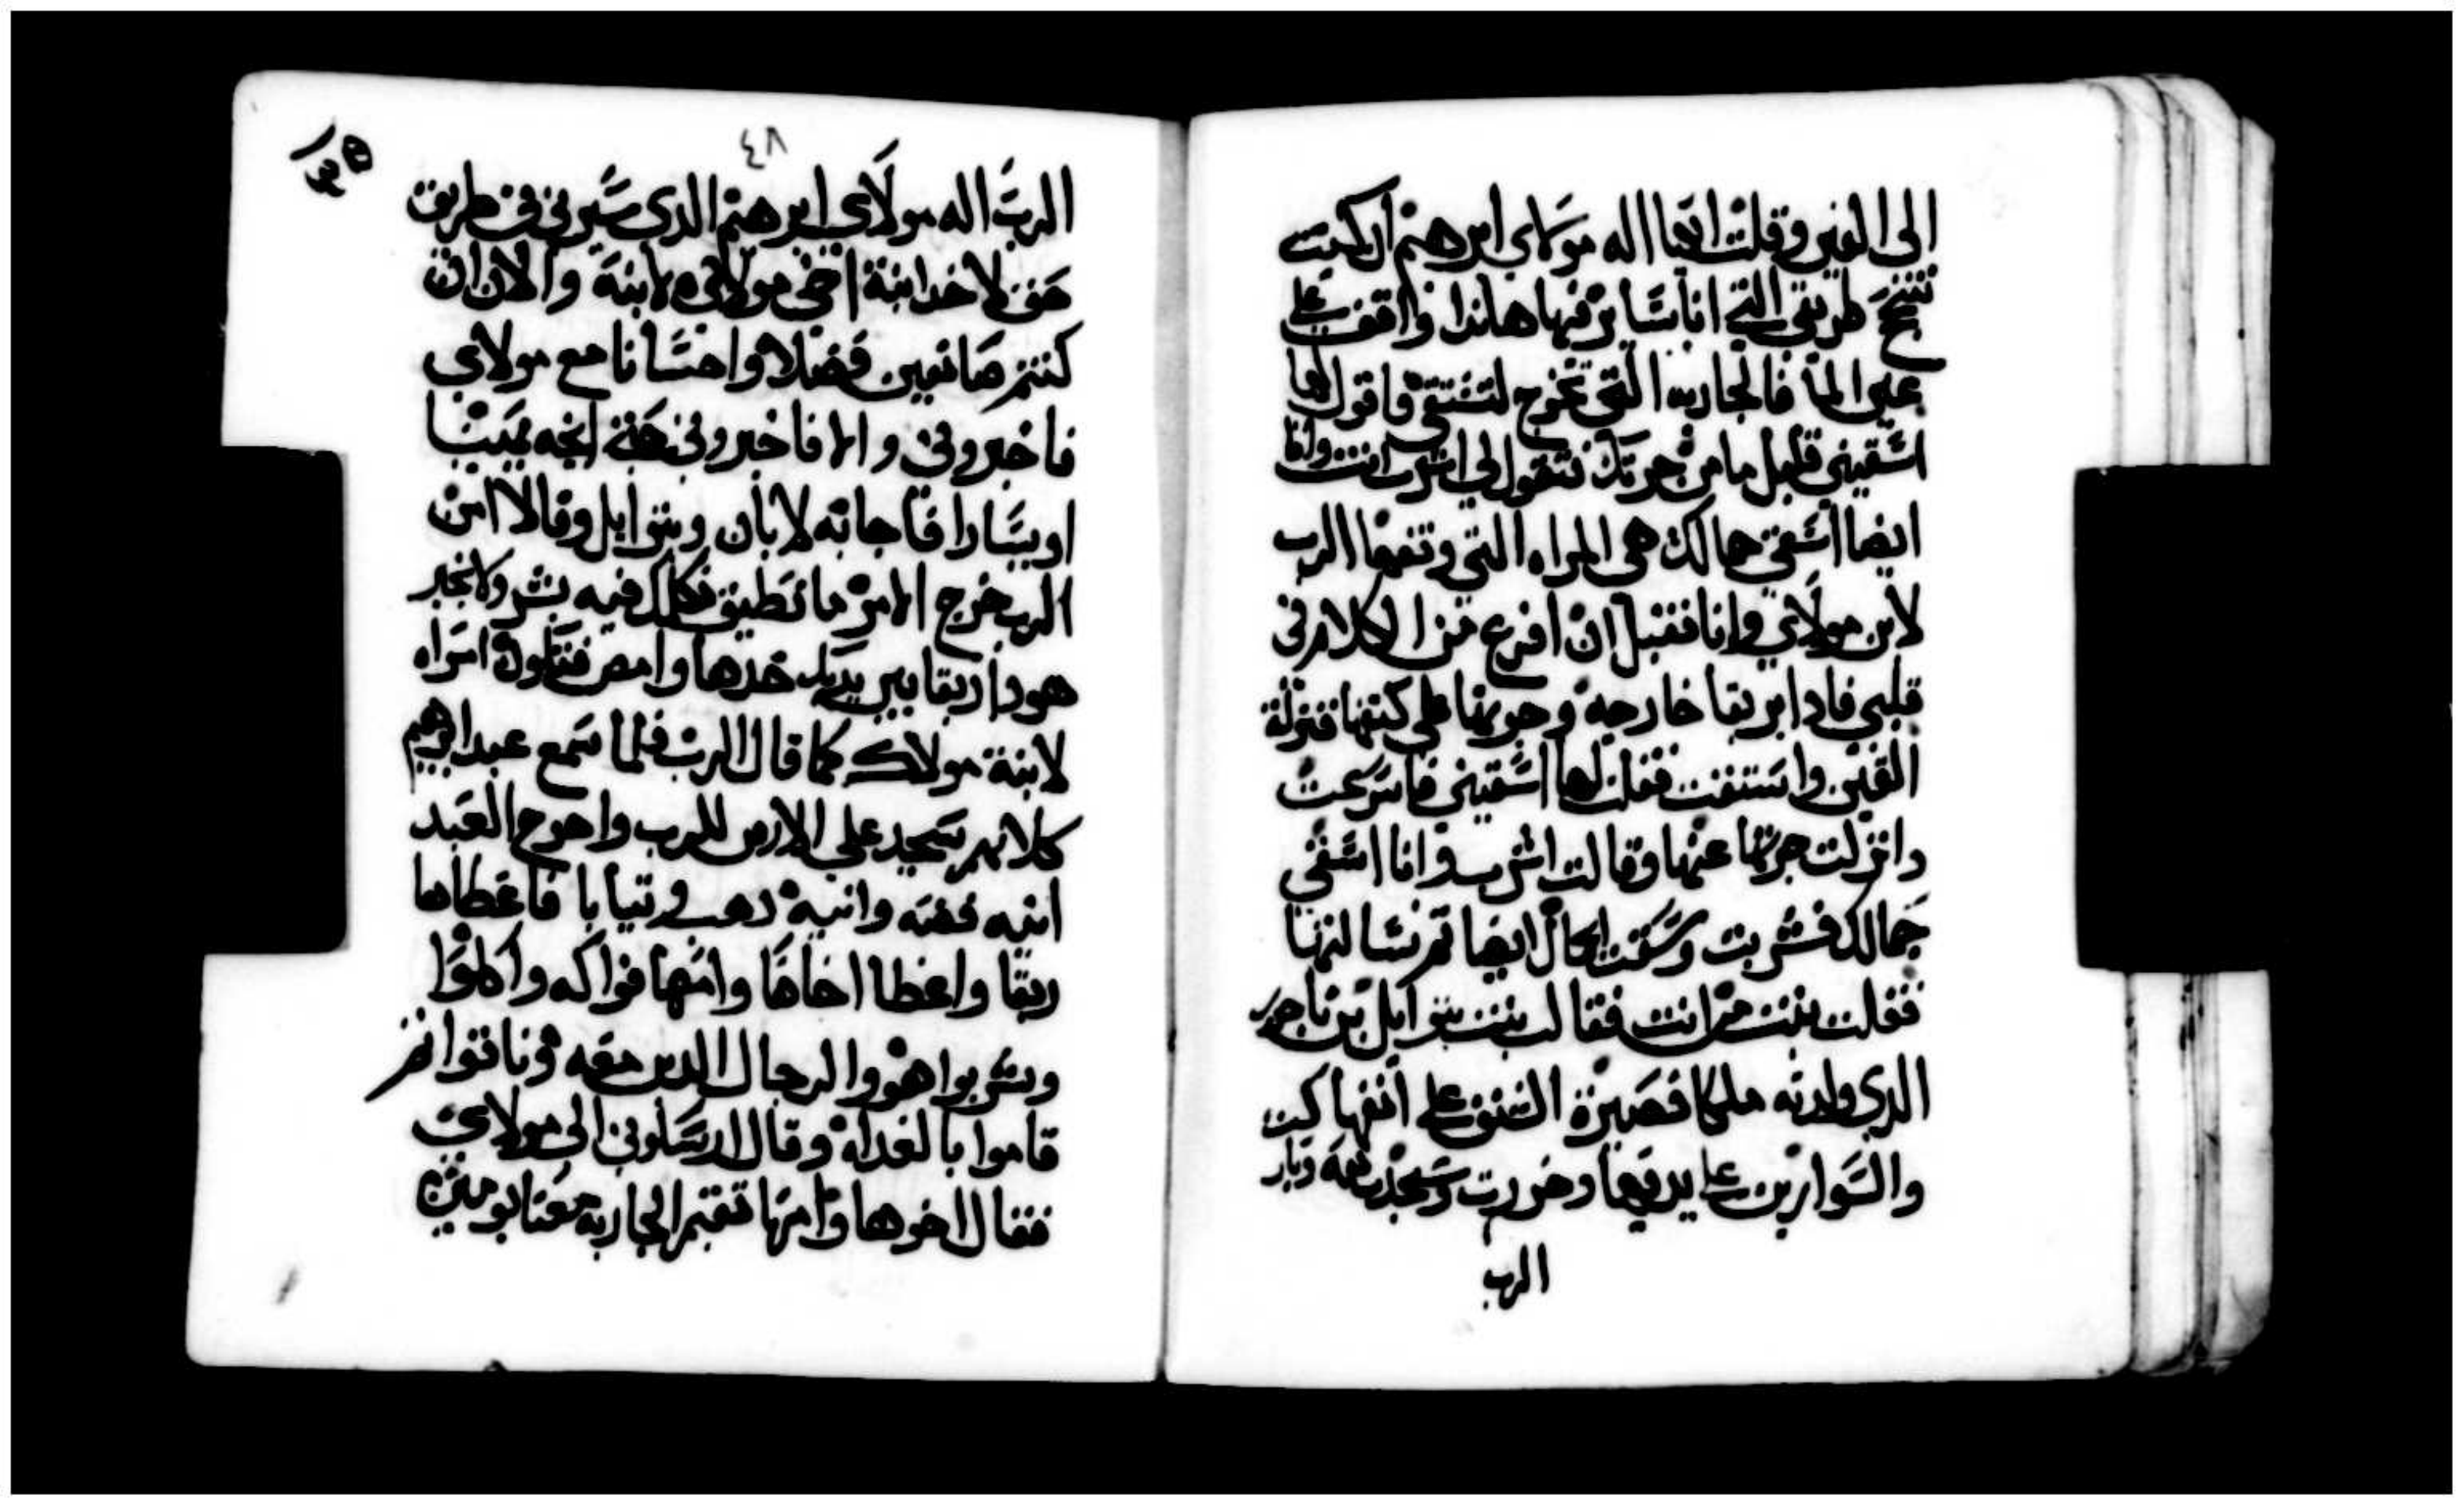 الى العين وقلت ايها اله مولاي ابرهيم ان كنت
تنجح طريقي التي انا ساير فيها هاندا واقف علي
عين الما فالجاريه التي تخرج لتستقي فاقول لها
اسقيني قليل ما من جرتك فتقول لي اشرب انت وانا
ايضا استقي جمالك هي المراه التي وتقها الرب
لابن مولاي وانا فقبل ان افرغ من الكلام في
قلبي فادا بربقا خارجة وجرتها علي كتفها فنزلة
العين واستقت فقلت لها اسقيني فاسرعت
وانزلت جرتها عنها وقالت اشرب وانا اسقي
جمالك فشربت وسقت الجمال ايضا تم نسالتها
فقلت بنت من انت فقالت بنت بتوايل بن ناحور
الدي ولدته ملكا فصيرة الشنف علي انفها
والسوارين علي يديها وخررت وسجدت لله وبار
الرب
٤٨
الرب اله مولاي ابرهيم الدي سيرني في طريق
حق لاخد ابنة اخي مولاي لابنه والان ان
كنتم صانعين فضلا واحسانا مع مولاي
فاخبروني والا فاخبروني حتي اتجه يمينا
او يسارا فاجابه لابان وبتوايل وقالا من
الرب خرج الامر ما نطيق نكلمك فيه بشر ولا بخير
هودا ربقا بين يديك خدها وامض فتكون امراه
لابنة مولاك كما قال الرب فلما سمع عبد ابرهيم
كلامهم سجد علي الارض للرب واخرج العبد
انيه فضه وانية دهب وتيابا فاعطاها
ربقا واعطا اخاها وامها فواكه واكلوا
وشربوا هو والرجال الدين معه وناموا تم
قاموا بالغداة وقال ارسلوني الي مولاي
فقال اخوها وامها تقيم الجارية معنا يومين